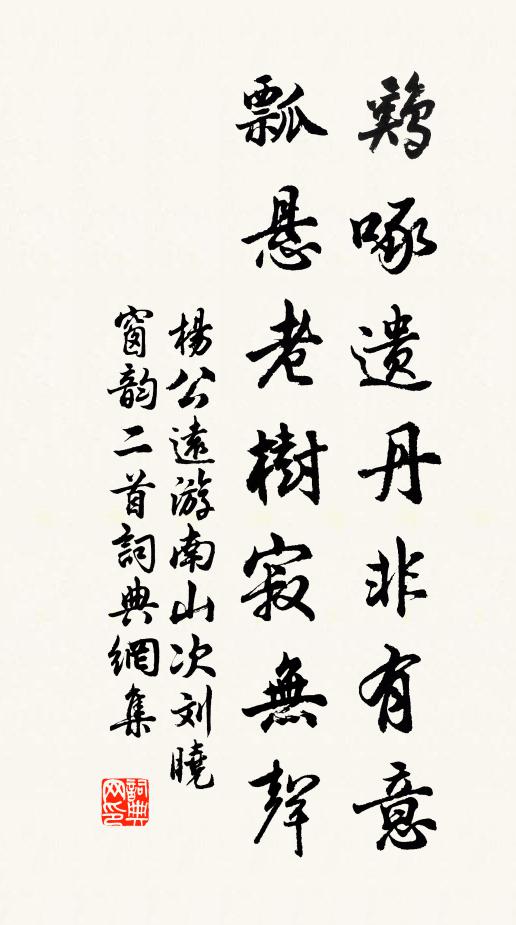 鷄啄遺丹非有意
瓢悬老樹寂無聲
楊公遠游南山次刘曉
窗韵二首詞典網集
詞典
网印